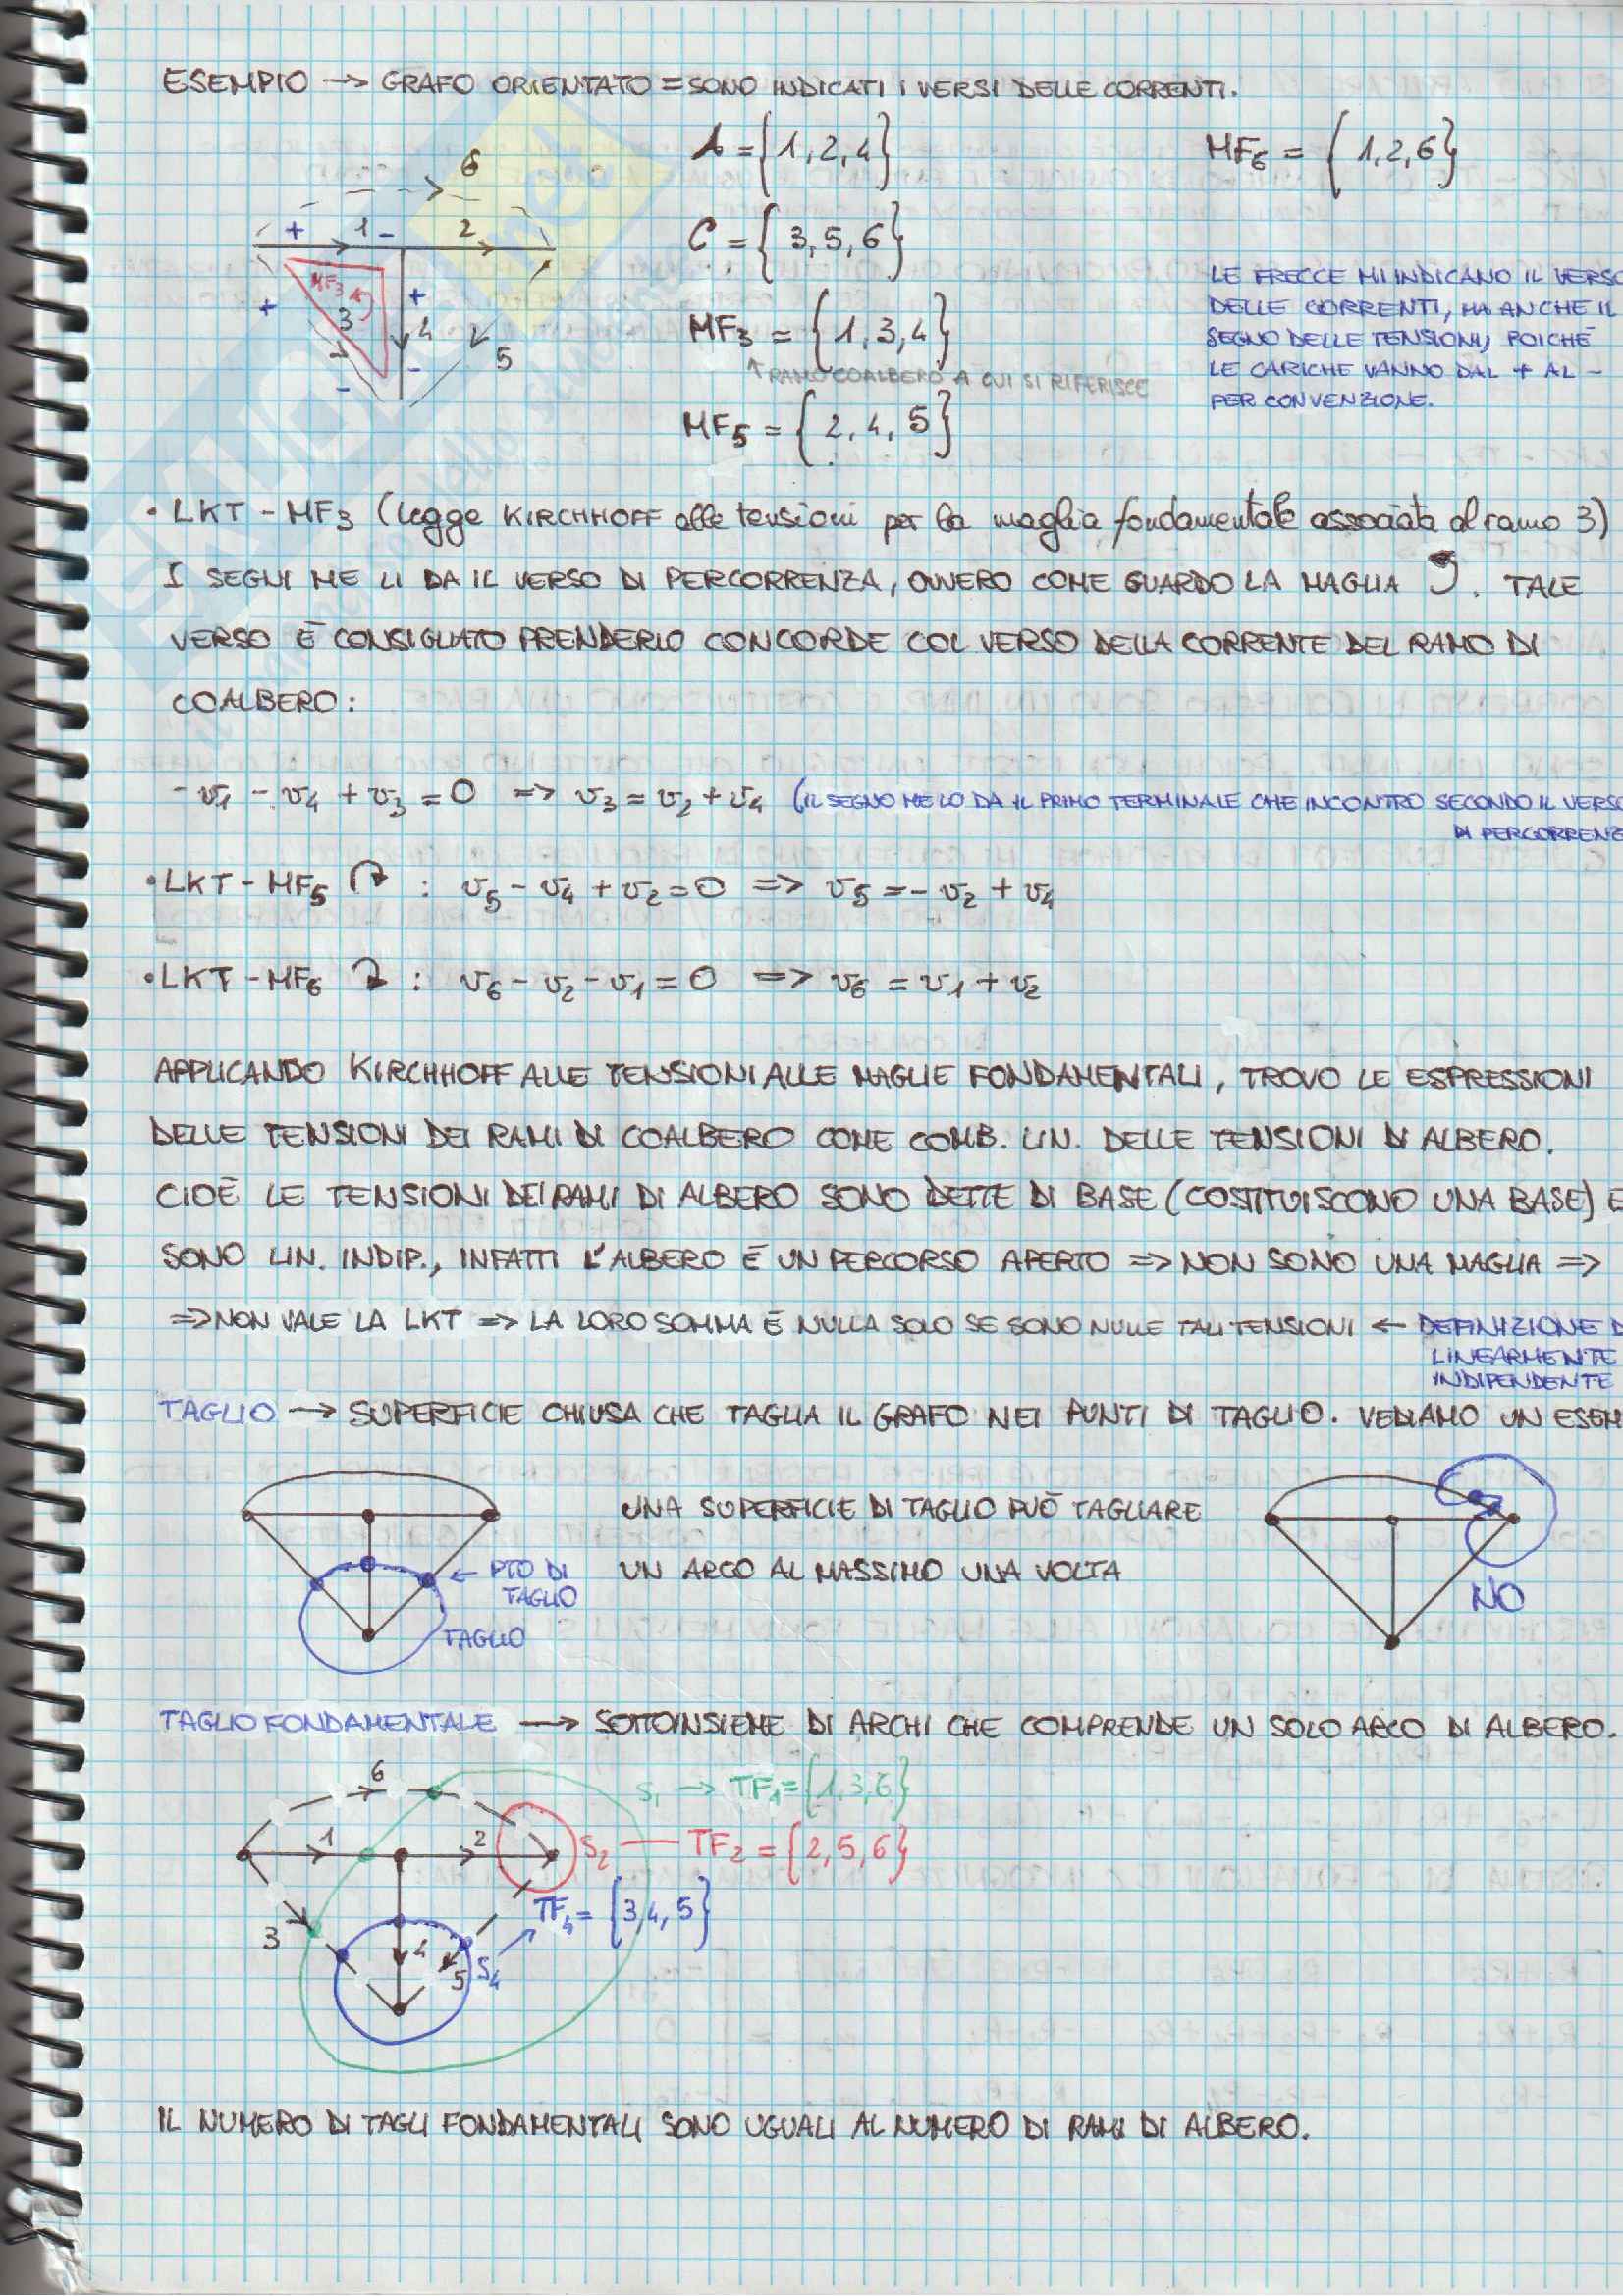 ESEMPIO → GRAFO ORIENTATO = SONO INDICATI I VERSI DELLE CORRENTI.
A = {1,2,4}
MF6 = {1,2,6}
6
+ 1 - 2
C = {3,5,6}
MF3
+ 3 + 4 5
- -
LE FRECCE MI INDICANO IL VERSO
DELLE CORRENTI, MA ANCHE IL
SEGNO DELLE TENSIONI, POICHÉ
LE CARICHE VANNO DAL + AL -
PER CONVENZIONE.
MF3 = {1,3,4}
↑ RAMO COALBERO A CUI SI RIFERISCE
MF5 = {2,4,5}
• LKT - MF3 (legge KIRCHHOFF alle tensioni per la maglia fondamentale associata al ramo 3)
I SEGNI ME LI DA IL VERSO DI PERCORRENZA, OVVERO COME GUARDO LA MAGLIA . TALE
VERSO È CONSIGLIATO PRENDERLO CONCORDE COL VERSO DELLA CORRENTE DEL RAMO DI
COALBERO:
- v1 - v4 + v3 = 0 => v3 = v2 + v4 (IL SEGNO ME LO DA IL PRIMO TERMINALE CHE INCONTRO SECONDO IL VERSO
DI PERCORRENZ
• LKT - MF5 : v5 - v4 + v2 = 0 => v5 = - v2 + v4
• LKT - MF6 : v6 - v2 - v1 = 0 => v6 = v1 + v2
APPLICANDO KIRCHHOFF ALLE TENSIONI ALLE MAGLIE FONDAMENTALI, TROVO LE ESPRESSIONI
DELLE TENSIONI DEI RAMI DI COALBERO COME COMB. LIN. DELLE TENSIONI DI ALBERO.
CIOÈ LE TENSIONI DEI RAMI DI ALBERO SONO DETTE DI BASE (COSTITUISCONO UNA BASE) E
SONO LIN. INDIP., INFATTI L'ALBERO È UN PERCORSO APERTO => NON SONO UNA MAGLIA =>
=> NON VALE LA LKT => LA LORO SOMMA È NULLA SOLO SE SONO NULLE TALI TENSIONI ← DEFINIZIONE D
LINEARMENTE
INDIPENDENTE
TAGLIO → SUPERFICIE CHIUSA CHE TAGLIA IL GRAFO NEI PUNTI DI TAGLIO. VEDIAMO UN ESEM
UNA SUPERFICIE DI TAGLIO PUÒ TAGLIARE
UN ARCO AL MASSIMO UNA VOLTA
← PTO DI
TAGLIO
TAGLIO
NO
TAGLIO FONDAMENTALE → SOTTOINSIEME DI ARCHI CHE COMPRENDE UN SOLO ARCO DI ALBERO.
6
S1 → TF1 = {1,3,6}
1 2
S2 — TF2 = {2,5,6}
TF4 = {3,4,5}
3 4 5 S4
IL NUMERO DI TAGLI FONDAMENTALI SONO UGUALI AL NUMERO DI RAMI DI ALBERO.